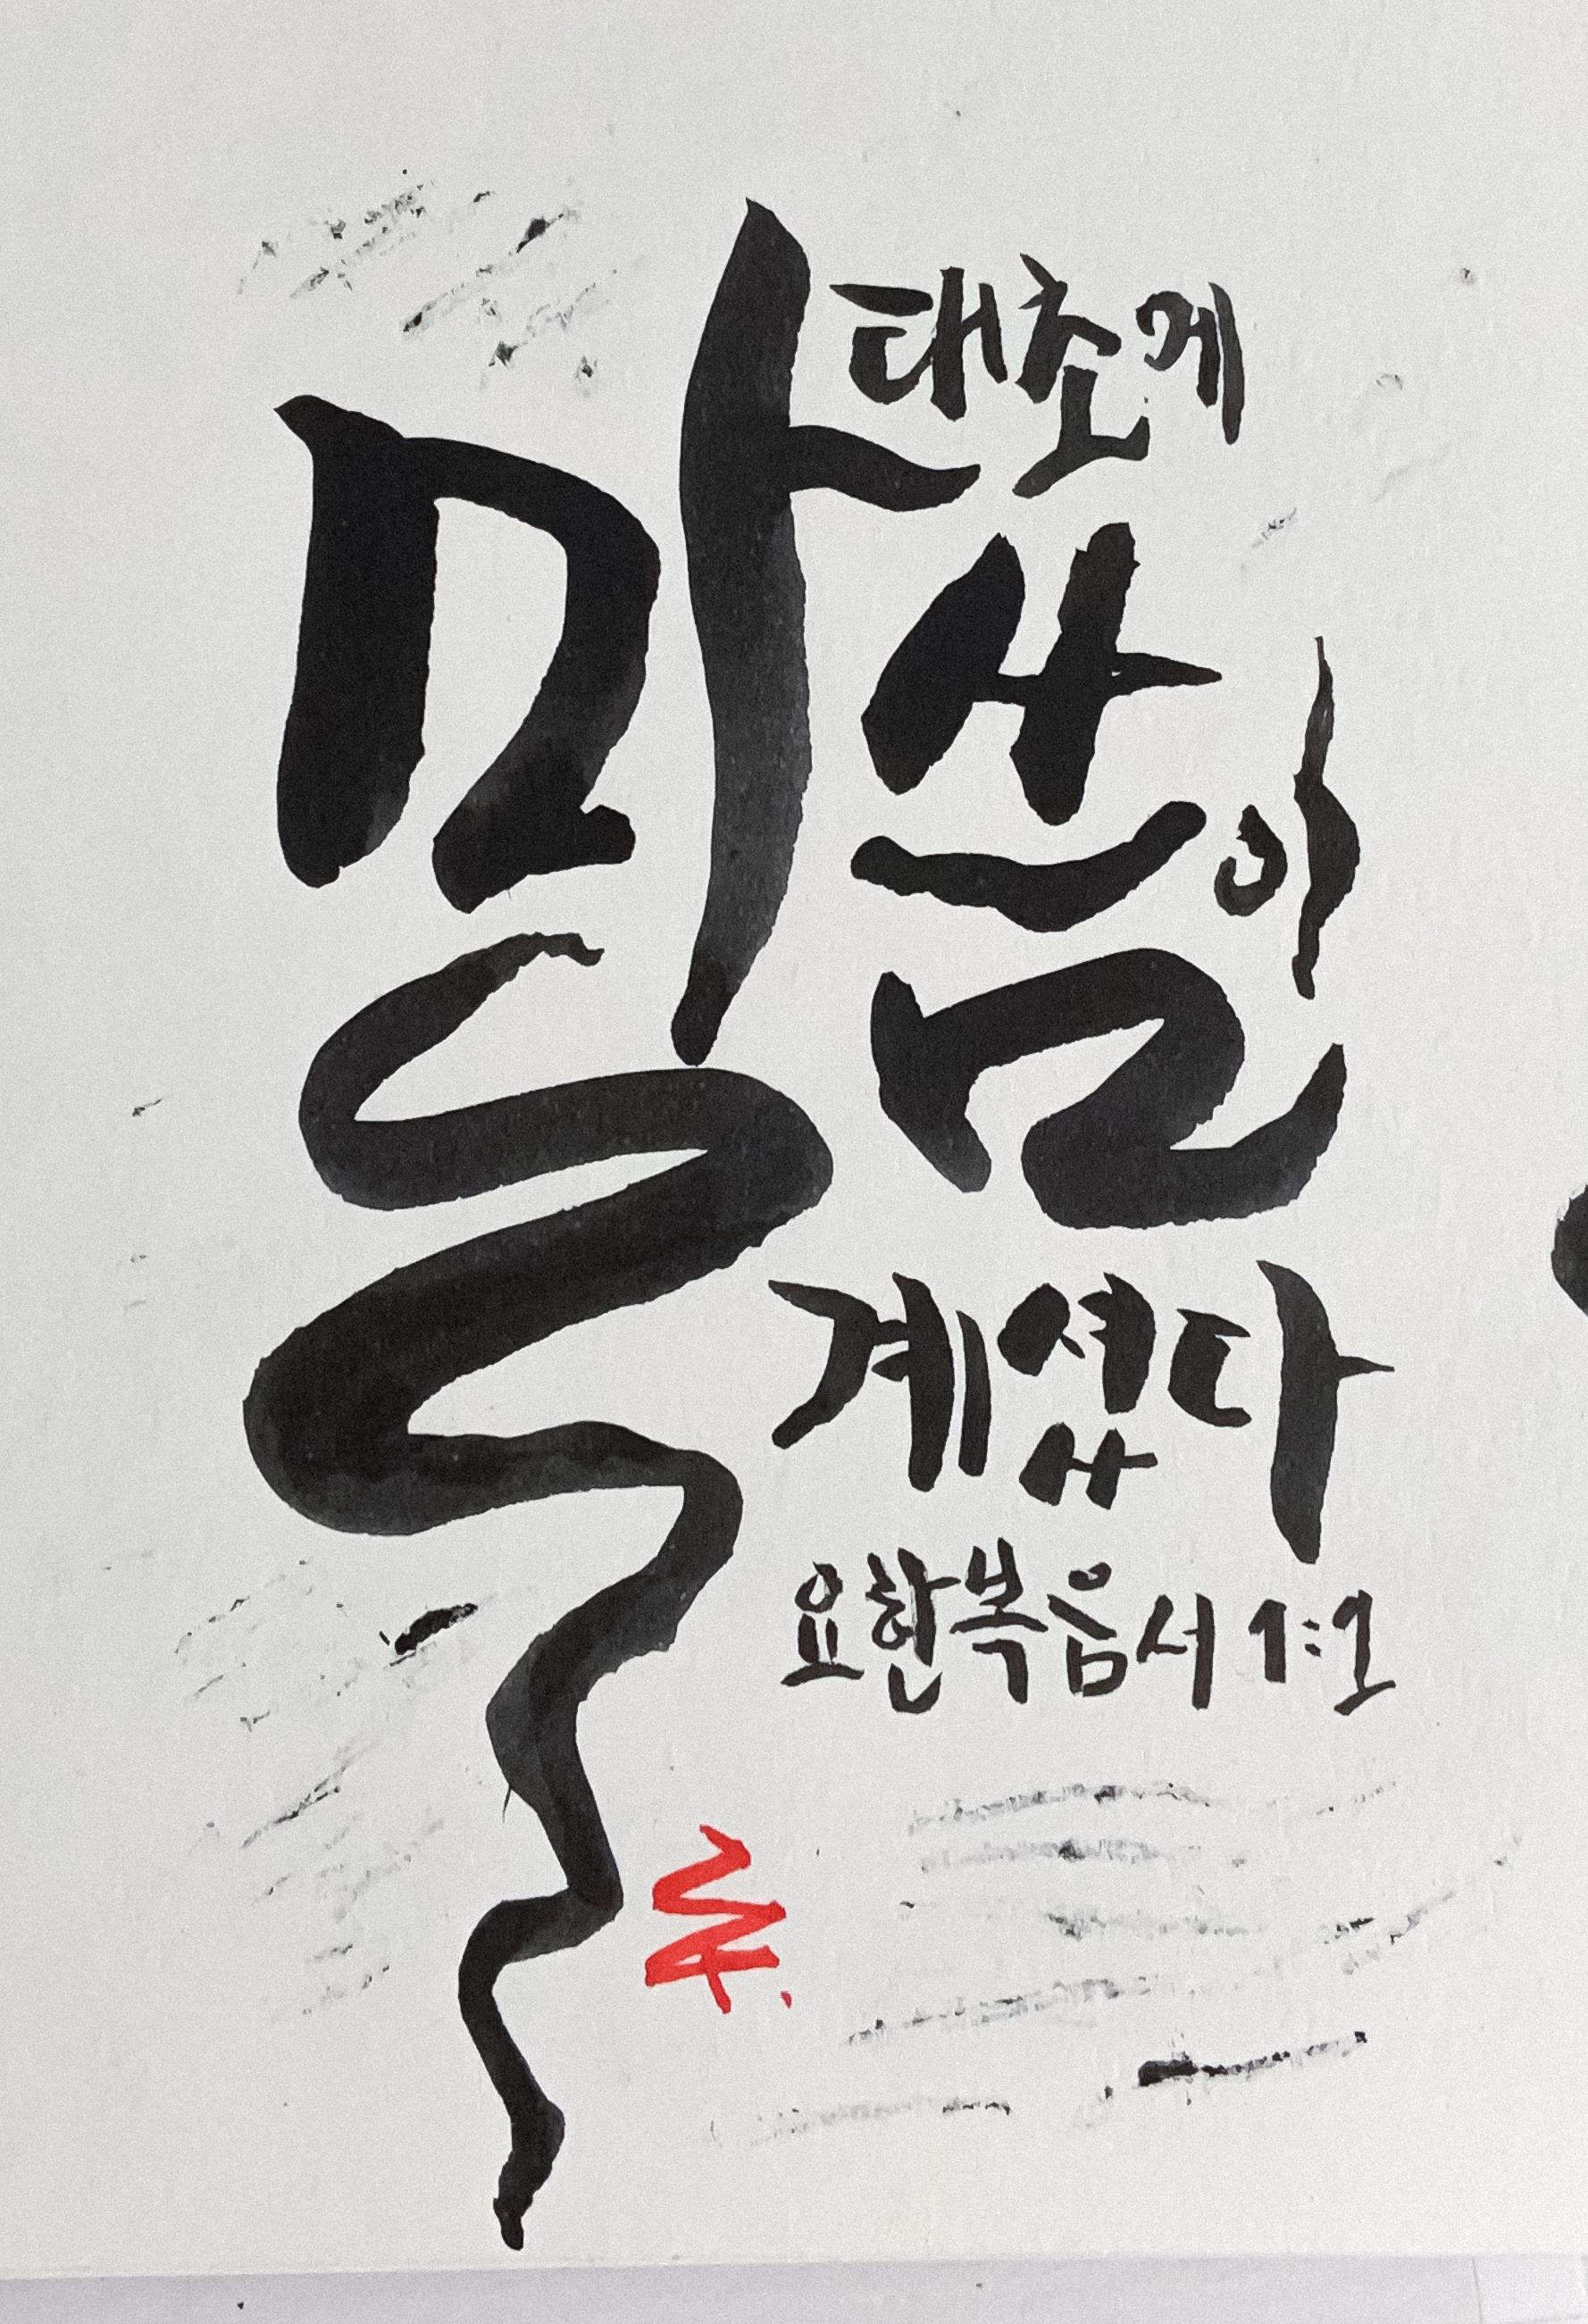 태초에
말씀이
계셨다
요한복음서 1:1